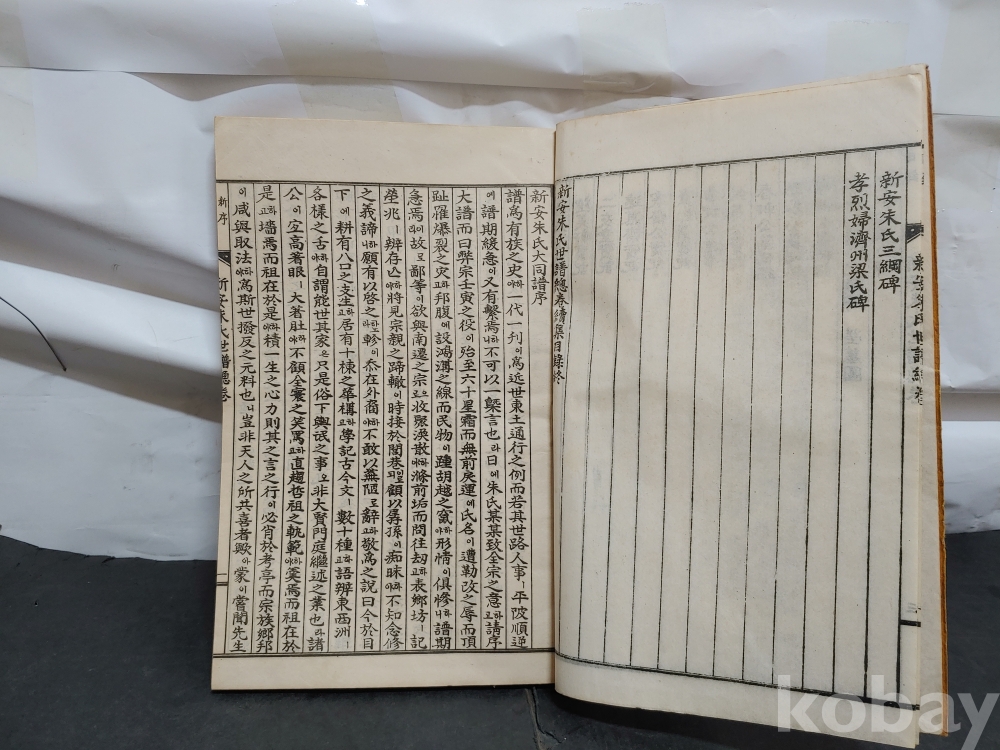 新安朱氏三綱碑
孝烈婦濟州梁氏碑
新安朱氏世譜總卷續集目錄終
新安朱氏世譜總卷
三
新安朱氏大同譜序
譜爲有族之史야하一代一刊이爲近世東土通行之例而若其世路人事ㅣ平陂順逆
에譜期緩急이又有繫焉니하不可以一槩言也라日에朱氏某某致全宗之意고하請序
大譜而曰弊宗壬寅之役이殆至六十星霜而無前戾運에氏名이遭勒改之辱而頂
趾罹爆裂之灾고하邦腹에設鴻溝之線而民物이踵胡越之
야하形情이俱慘니하譜期
急焉라이故로鄙等이欲與南遷之宗로으收聚渙散야하滌前垢而問往刼고하表鄕坊ㅣ記
塋兆ㅣ辨存亾야하將見宗親之蹄轍이時接於閭巷
顧以孱孫이痴昧야하不知念修
之義諦니하願有以啓之라하軫이忝在外裔야하不敢以蕪陋로辭고하敬爲之說曰今於目
下에耕有八口之支生고하居有十棟之華構고하學記古今文ㅣ數十種고하語辨東西洲ㅣ
各樣之舌야하自謂能世其家은只是俗下輿氓之事오非大賢門庭繼述之業也라諸
公이宜高著眼ㅣ大著肚야하不顧全寰之笑罵고하直趨哲祖之軌範야하羹焉而祖在於
是고하墻焉而祖在於是야하積一生之心力則其之言之行이必肖於考亭而宗族鄕邦
이咸與取法야하爲斯世撥反之元料也니豈非天人之所共喜者歟아蒙이嘗聞先生
新序
新安朱氏世譜總卷
kobay